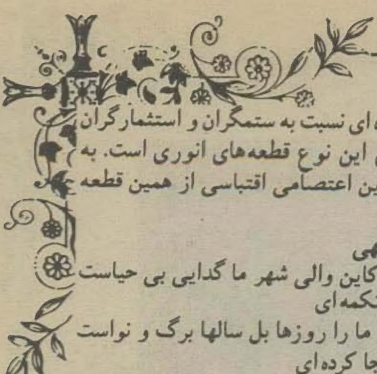 ه ای نسبت به ستمگران و استثمارگران
این نوع قطعه‌های انوری است. به
ین اعتصامی اقتباسی از همین قطعه
هی
کاین والی شهر ما گدایی بی حیاست
تکمه ای
ما را روزها بل سالها برگ و نواست
جا کرده ای